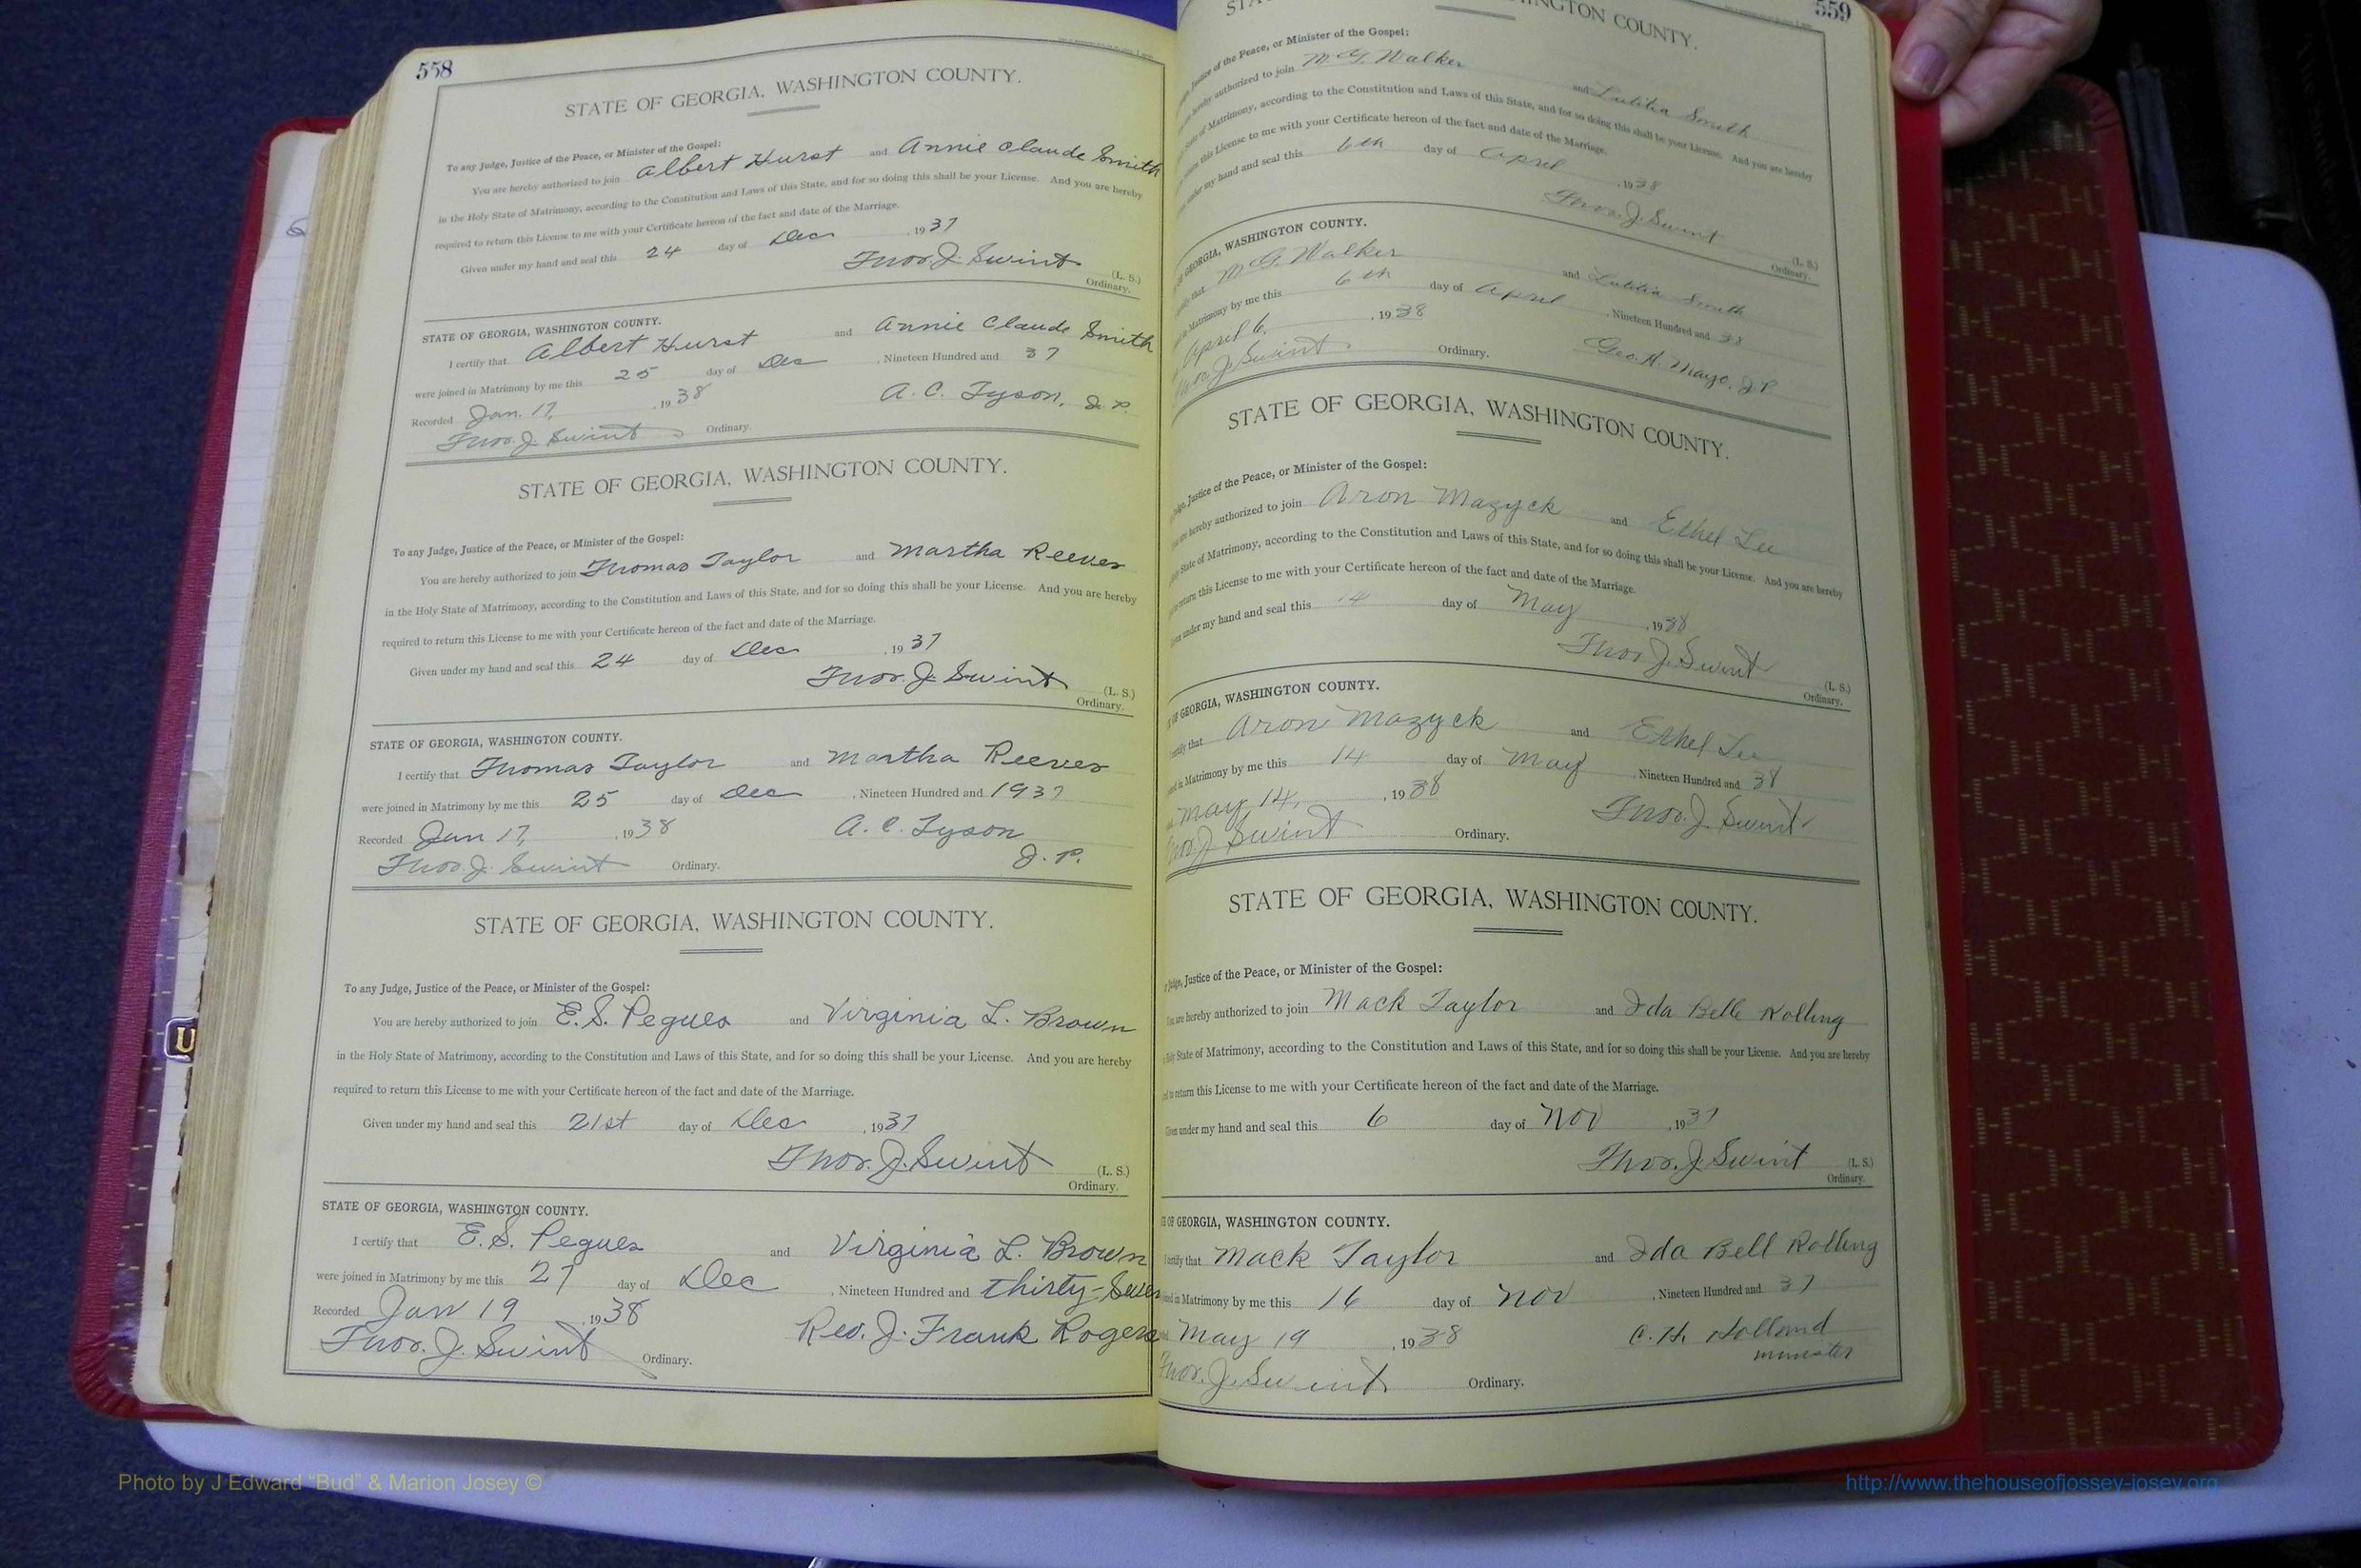 558
STATE OF GEORGIA, WASHINGTON COUNTY.
To any Judge, Justice of the Peace, or Minister of the Gospel:
You are hereby authorized to join Albert Hurst and Annie Claude Smith
in the Holy State of Matrimony, according to the Constitution and Laws of this State, and for so doing this shall be your License. And you are hereby
required to return this License to me with your Certificate hereon of the fact and date of the Marriage.
Given under my hand and seal this 24 day of Dec , 1937
Thos. J. Swint (L. S.)
Ordinary.
STATE OF GEORGIA, WASHINGTON COUNTY.
I certify that Albert Hurst and Annie Claude Smith
were joined in Matrimony by me this 25 day of Dec , Nineteen Hundred and 37
Recorded Jan. 17, , 1938 A. C. Tyson, J. P.
Thos. J. Swint Ordinary.
STATE OF GEORGIA, WASHINGTON COUNTY.
To any Judge, Justice of the Peace, or Minister of the Gospel:
You are hereby authorized to join Thomas Taylor and Martha Reeves
in the Holy State of Matrimony, according to the Constitution and Laws of this State, and for so doing this shall be your License. And you are hereby
required to return this License to me with your Certificate hereon of the fact and date of the Marriage.
Given under my hand and seal this 24 day of Dec , 1937
Thos. J. Swint (L. S.)
Ordinary.
STATE OF GEORGIA, WASHINGTON COUNTY.
I certify that Thomas Taylor and Martha Reeves
were joined in Matrimony by me this 25 day of Dec , Nineteen Hundred and 1937
Recorded Jan 17, , 1938 A. C. Tyson
J. P.
Thos. J. Swint Ordinary.
STATE OF GEORGIA, WASHINGTON COUNTY.
To any Judge, Justice of the Peace, or Minister of the Gospel:
You are hereby authorized to join E. S. Pegues and Virginia L. Brown
in the Holy State of Matrimony, according to the Constitution and Laws of this State, and for so doing this shall be your License. And you are hereby
required to return this License to me with your Certificate hereon of the fact and date of the Marriage.
Given under my hand and seal this 21st day of Dec , 1937
Thos. J. Swint (L. S.)
Ordinary.
STATE OF GEORGIA, WASHINGTON COUNTY.
I certify that E. S. Pegues and Virginia L. Brown
were joined in Matrimony by me this 27 day of Dec , Nineteen Hundred and thirty-Seven
Recorded Jan 19 , 1938 Rev. J. Frank Rogers
Thos. J. Swint Ordinary.
559
INGTON COUNTY.
Justice of the Peace, or Minister of the Gospel:
hereby authorized to join M. G. Walker and Lutitia Smith
State of Matrimony, according to the Constitution and Laws of this State, and for so doing this shall be your License. And you are hereby
return this License to me with your Certificate hereon of the fact and date of the Marriage.
under my hand and seal this 6th day of April , 1938
Thos. J. Swint (L. S.)
Ordinary.
GEORGIA, WASHINGTON COUNTY.
that M. G. Walker and Lutitia Smith
in Matrimony by me this 6th day of April , Nineteen Hundred and 38
April 6, , 1938 Geo. H. Mayo, J. P.
Thos. J. Swint Ordinary.
STATE OF GEORGIA, WASHINGTON COUNTY.
Judge, Justice of the Peace, or Minister of the Gospel:
are hereby authorized to join Aron Mazyck and Ethel Lee
Holy State of Matrimony, according to the Constitution and Laws of this State, and for so doing this shall be your License. And you are hereby
return this License to me with your Certificate hereon of the fact and date of the Marriage.
Given under my hand and seal this 14 day of May , 1938
Thos. J. Swint (L. S.)
Ordinary.
OF GEORGIA, WASHINGTON COUNTY.
certify that Aron Mazyck and Ethel Lee
in Matrimony by me this 14 day of May , Nineteen Hundred and 38
May 14, , 1938 Thos. J. Swint
Thos. J. Swint Ordinary.
STATE OF GEORGIA, WASHINGTON COUNTY.
Judge, Justice of the Peace, or Minister of the Gospel:
You are hereby authorized to join Mack Taylor and Ida Belle Rolling
Holy State of Matrimony, according to the Constitution and Laws of this State, and for so doing this shall be your License. And you are hereby
to return this License to me with your Certificate hereon of the fact and date of the Marriage.
Given under my hand and seal this 6 day of Nov , 1937
Thos. J. Swint (L. S.)
Ordinary.
OF GEORGIA, WASHINGTON COUNTY.
I certify that Mack Taylor and Ida Bell Rolling
in Matrimony by me this 16 day of Nov , Nineteen Hundred and 37
May 19 , 1938 C. H. Holland
minister
Thos. J. Swint Ordinary.
U
Photo by J Edward “Bud” & Marion Josey ©
http://www.thehouseofjossey-josey.org